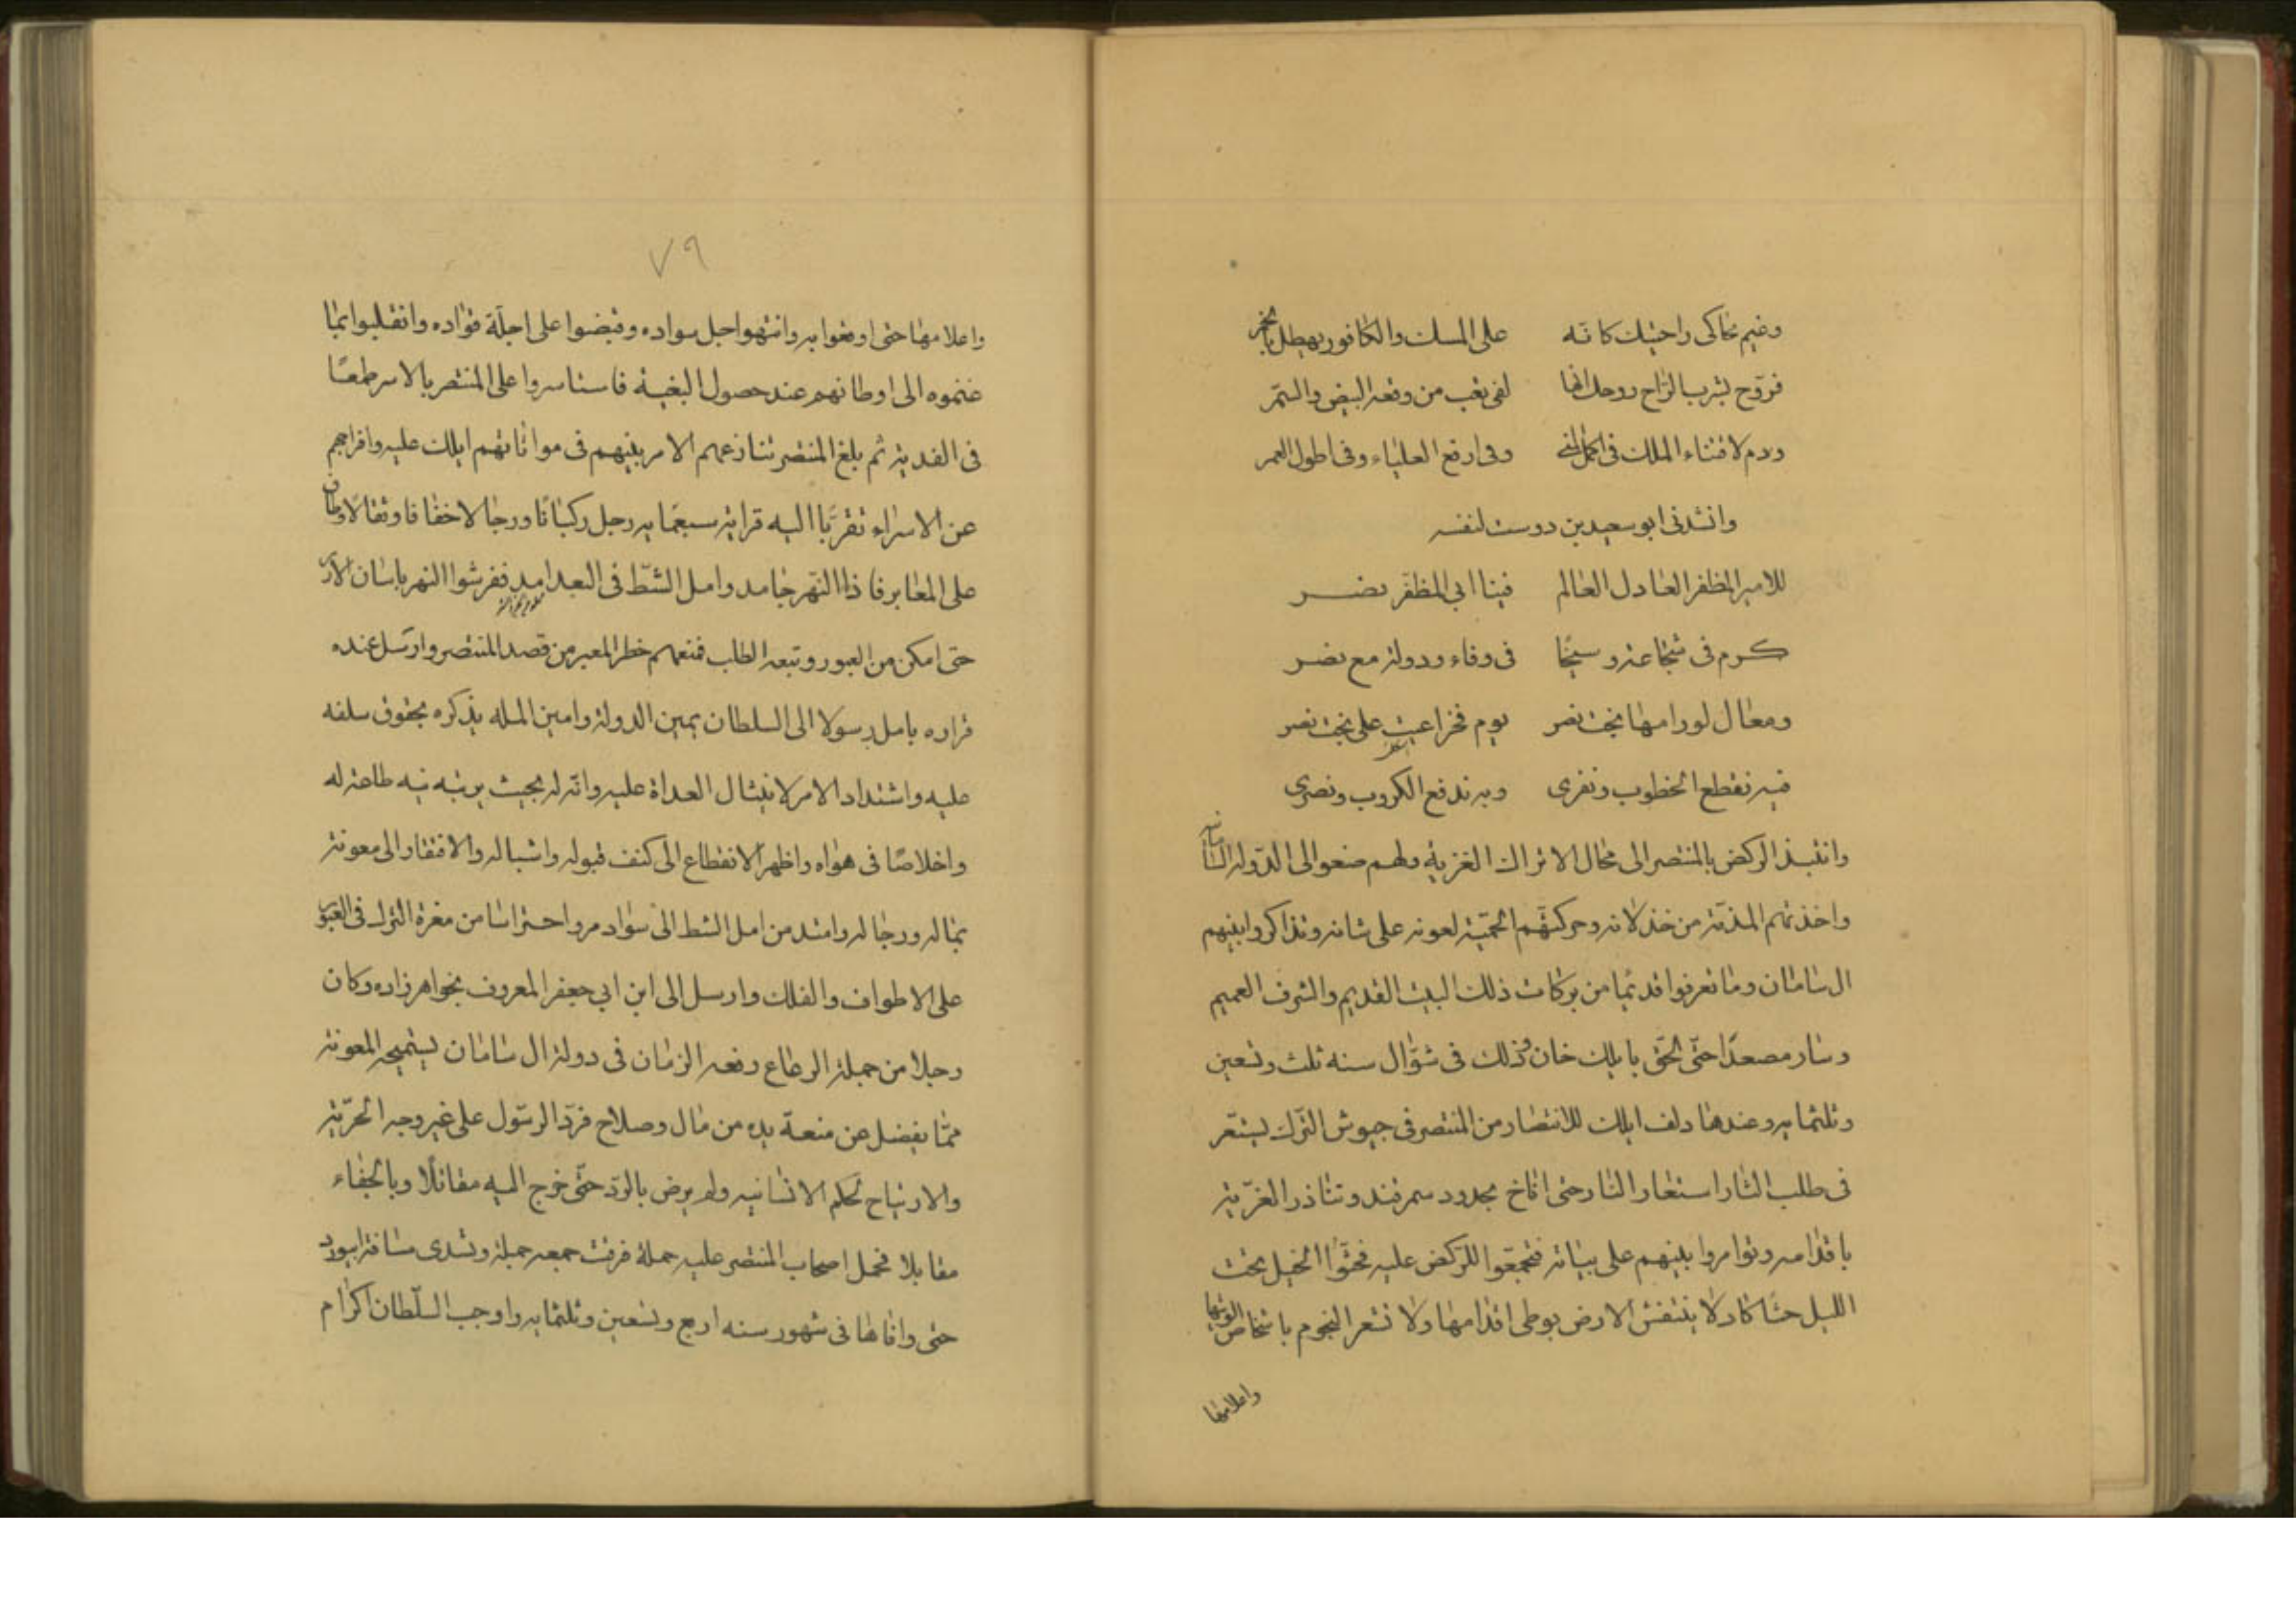 وغيم يحاكى راحتيك كانه على المسك والكافور يهطل بالخمر
فروح بشرب الراح روحك انها لفى تعب من وقعه البيض والسمر
ودم لاقتناء الملك فى اكمل المنى وفى ارفع العلياء وفى اطول العمر
وانشدنى ابو سعيد بن دوست لنفسه
للامير المظفر العادل العالم فينا ابى المظفر نصر
كرم فى شجاعة وسخا فى وفاء ودولة مع نصر
ومعال لو رامها بخت نصر يوم فخر اعيت على بخت نصر
فبه نقطع الخطوب ونفرى وبه ندفع الكروب ونصرى
وانتبذ الركض بالمنتصر الى محال الاتراك الغزية ولهم صغو الى الدولة السامانيه
واخذتهم المذمة من خذلانه وحركتهم الحمية لعونه على شانه وتذاكروا بينهم
ال سامان وما تعرفوا قديما من بركات ذلك البيت القديم والشرف العميم
وسار مصعدا حتى لحق بايلك خان وذلك فى شوال سنه ثلث وتسعين
وثلثمايه وعندها دلف ايلك للانتصار من المنتصر فى جيوش الترك ليستعر
فى طلب الثار استعار النار حتى اناخ بحدود سمرقند وتناذر الغزية
باقدامه وتوامروا بينهم على بياته فتجمعوا للركض عليه فحثوا الخيل تحت
الليل حثا كاد لا ينتفش الارض بوطى اقدامها ولا تشعر النجوم باشخاص الويتها
واعلامها
٧٩
واعلامها حتى اوقعوا به وانتهوا جل سواده وقبضوا على اجلة قواده وانقلبوا بما
غنموه الى اوطانهم عند حصول البغية فاستاسروا على المنتصر بالاسر طمعا
فى الفدية ثم بلغ المنتصر تنازعهم الامر بينهم فى مواتاتهم ايلك عليه وافراجهم
عن الاسراء تقربا اليه قرابة سبعمايه رجل ركبانا ورجالا خفافا وثقالا وطاف
على المعابر فاذا النهر جامد وامل الشط فى البعد امد ففرشوا النهر باتبان الارز
حتى امكن من العبور وتبعه الطلب فمنعهم خطر المعبر من قصد المنتصر وارسل عنده
قراره بامل رسولا الى السلطان يمين الدولة وامين المله يذكره بحقوق سلفه
عليه واشتداد الامر لانثيال العداة عليه وانه له بحيث يرتبه نيه طاعة له
واخلاصا فى هواه واظهر الانقطاع الى كنف قبوله واشباله والافتقار الى معونته
بماله ورجاله وامتد من امل الشط الى سواد مرو احتراسا من معرة الترك فى العبور
على الاطواف والفلك وارسل الى ابن ابى جعفر المعروف بخواهرزاده وكان
رجلا من جملة الرعاع رفعه الزمان فى دولة ال سامان يستميحه المعونة
مما يفضل عن منعة يده من مال وصلاح فرد الرسول على غير وجه الحرية
والارتياح لحكم الانسانيه ولم يرض بالرد حتى خرج اليه مقاتلا وبالجفاء
مقابلا فحمل اصحاب المنتصر عليه حملة فرقت جمعه جملة وتسدى مسافة ابيورد
حتى وافاها فى شهور سنه اربع وتسعين وثلثمايه واوجب السلطان اكرام